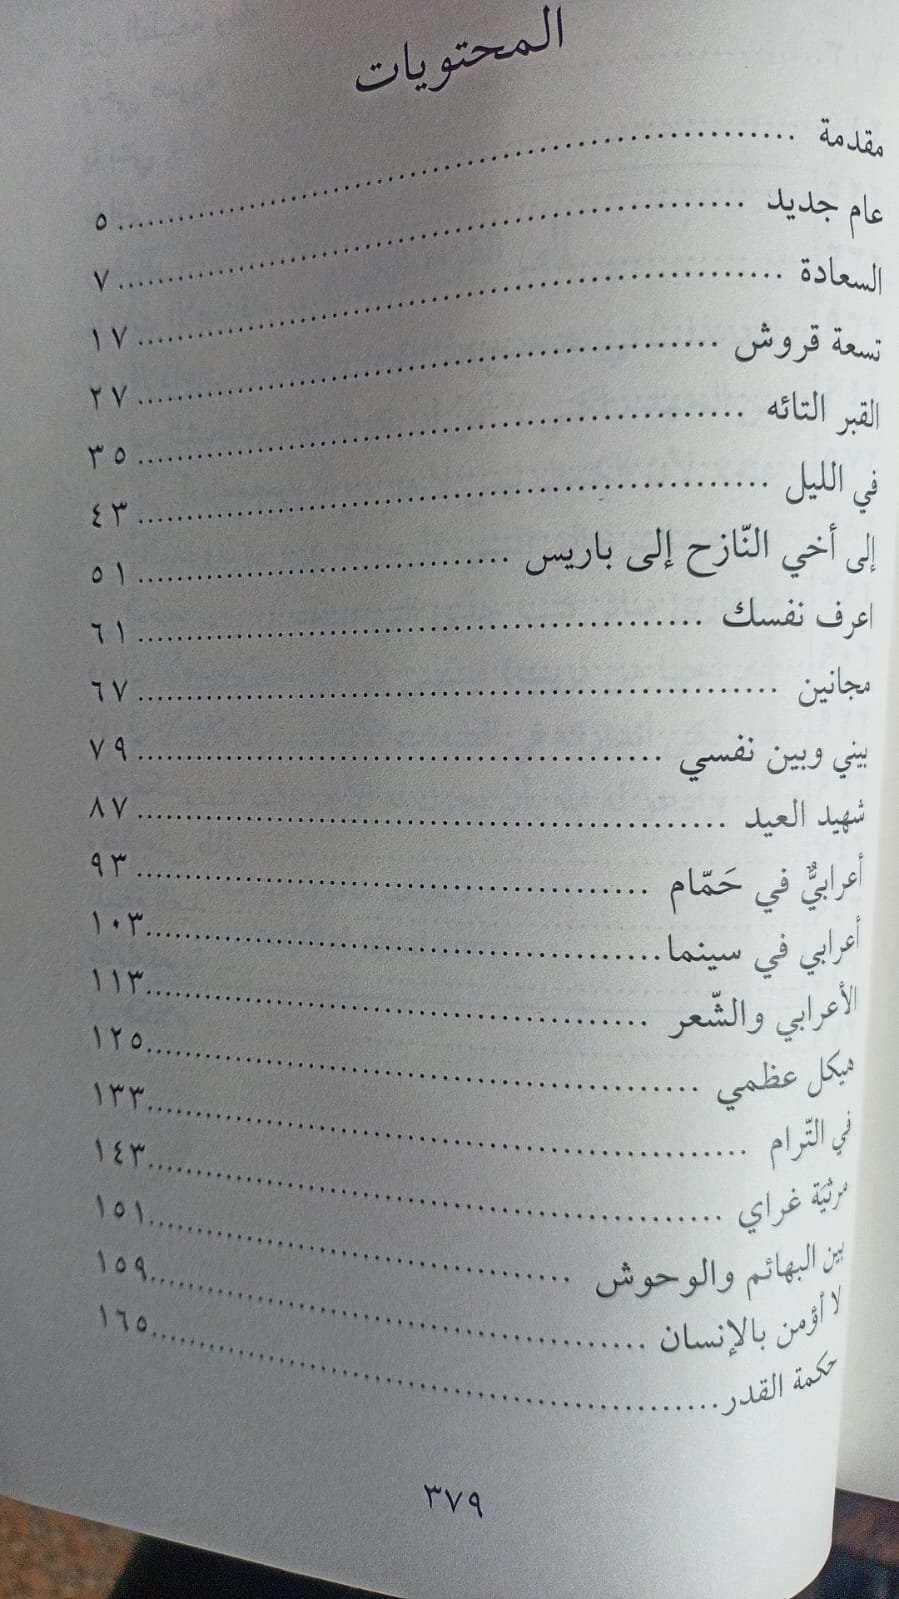 المحتويات
مقدمة ........ ٥
عام جديد ........ ٧
السعادة ........ ١٧
تسعة قروش ........ ٢٧
القبر التائه ........ ٣٥
في الليل ........ ٤٣
إلى أخي النّازح إلى باريس ........ ٥١
اعرف نفسك ........ ٦١
مجانين ........ ٦٧
بيني وبين نفسي ........ ٧٩
شهيد العيد ........ ٨٧
أعرابيٌّ في حَمّام ........ ٩٣
أعرابي في سينما ........ ١٠٣
الأعرابي والشّعر ........ ١١٣
هيكل عظمي ........ ١٢٥
في التّرام ........ ١٣٣
مرثيَة غراي ........ ١٤٣
بين البهائم والوحوش ........ ١٥١
لا أؤمن بالإنسان ........ ١٥٩
حكمة القدر ........ ١٦٥
٣٧٩